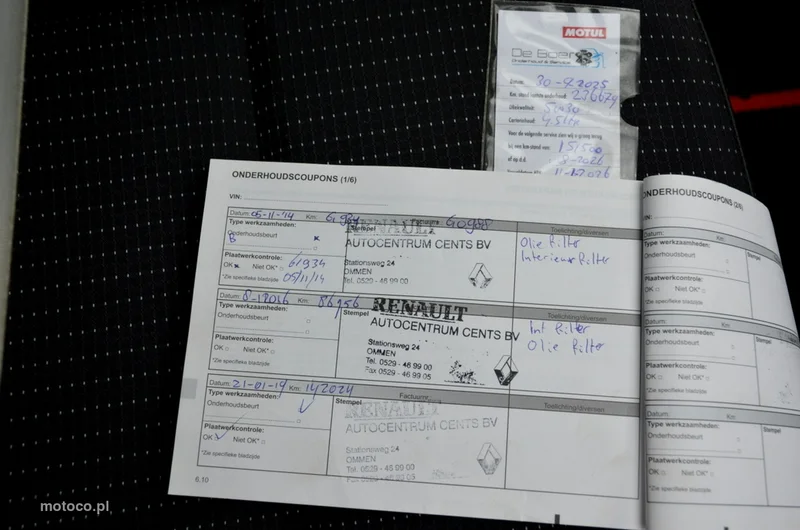 MOTUL
De Boer
Onderhoud & Service
Datum: 30-9-2025
Km. stand tijdens onderhoud: 236679
Oliekwaliteit: 5W30
Carterinhoud: 4.5 ltr
Voor de volgende service zien wij u graag terug
bij een km-stand van: 151500
of op d.d.
11-1-2026
ONDERHOUDSCOUPONS (1/6)
VIN:
Datum: 05-11-'14 Km: Factuurnr.
RENAULT
Type werkzaamheden:
Stempel
Toelichting/diversen
Onderhoudsbeurt
B
AUTOCENTRUM CENTS BV
Olie filter
Interieur filter
Plaatwerkcontrole: 61934
OK Niet OK*
*Zie specifieke bladzijde 05/11/14
Stationsweg 24
OMMEN
Tel. 0529 - 46 99 00
Datum: Km: 86956
RENAULT
Type werkzaamheden:
Stempel
Toelichting/diversen
Onderhoudsbeurt
AUTOCENTRUM CENTS BV
Int filter
Olie filter
Plaatwerkcontrole:
OK Niet OK*
*Zie specifieke bladzijde
Stationsweg 24
OMMEN
Tel. 0529 - 46 99 00
Fax 0529 - 46 99 05
Datum: 21-01-19 Km: 142024 Factuurnr.
RENAULT
Type werkzaamheden:
Stempel
Toelichting/diversen
Onderhoudsbeurt
AUTOCENTRUM CENTS BV
Plaatwerkcontrole:
OK Niet OK*
*Zie specifieke bladzijde
Stationsweg 24
OMMEN
Tel. 0529 - 46 99 00
6.10
ONDERHOUDSCOUPONS (2/6)
VIN:
Datum:
Type werkzaamheden:
Onderhoudsbeurt
Stempel
Plaatwerkcontrole:
OK Niet OK*
*Zie specifieke bladzijde
Datum:
Type werkzaamheden:
Onderhoudsbeurt
Stempel
Plaatwerkcontrole:
OK Niet OK*
*Zie specifieke bladzijde
Datum:
Type werkzaamheden:
Onderhoudsbeurt
Stempel
Plaatwerkcontrole:
OK Niet OK*
*Zie specifieke bladzijde
motoco.pl